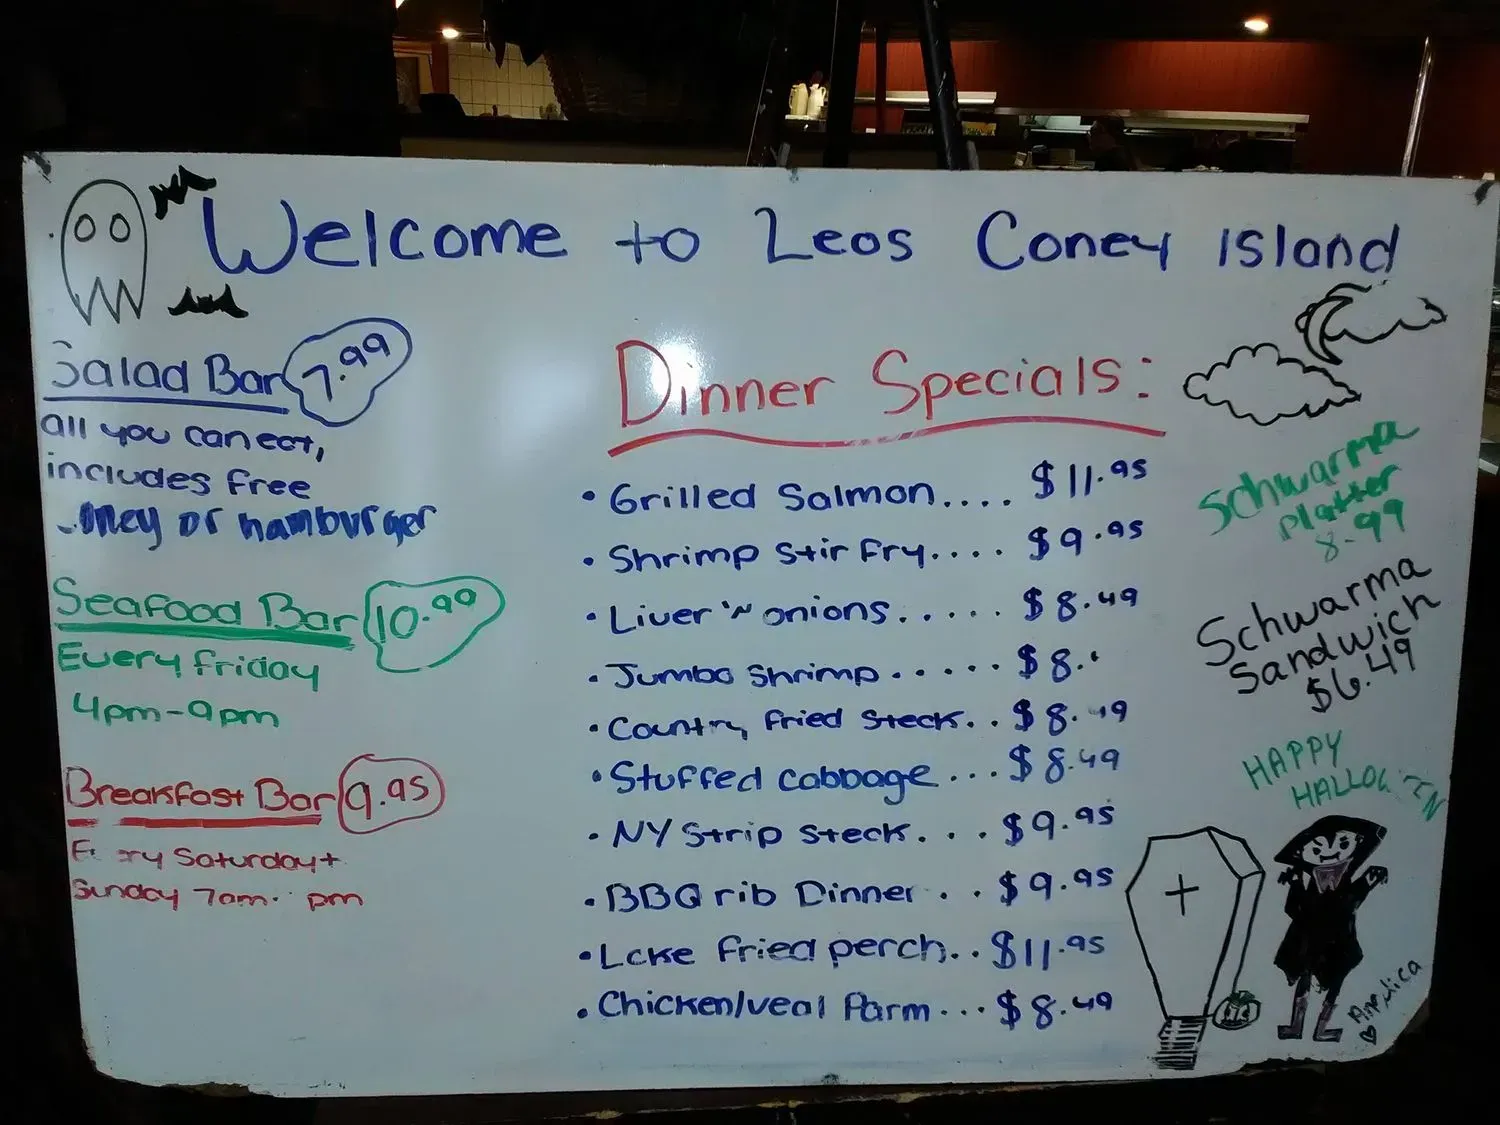 Welcome to Leos Coney Island
Salad Bar 7.99
all you can eat,
includes free
or hamburger
Seafood Bar 10.99
Every Friday
4pm-9pm
Breakfast Bar 9.95
Saturday +
Sunday 7am pm
Dinner Specials:
• Grilled Salmon.... $11.95
• Shrimp Stir Fry.... $9.95
• Liver 'N onions..... $8.49
• Jumbo Shrimp..... $8.
• Country Fried Steak.. $8.49
• Stuffed Cabbage... $8.49
• NY Strip Steak... $9.95
• BBQ rib Dinner.. $9.95
• Lake Fried perch.. $11.95
• Chicken/veal Parm... $8.49
Schwarma
Platter
8.99
Schwarma
Sandwich
$6.49
HAPPY
Angelica